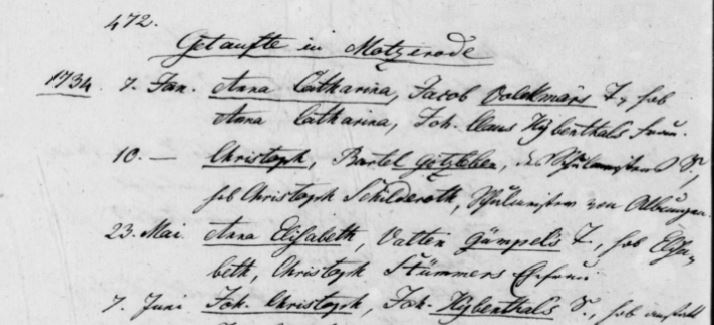 472.
Getaufte in Motzerode
1734. 7. Jan. Anna Catharina, Jacob Volckmars T., hob
Anna Catharina, Joh. Claus Hÿbenthals Frau.
10. — Christoph, Bartel Götzleben, des Schulmeisters S.,
hob Christoph Schilderoth, Schulmeister von Albungen.
23. Mai. Anna Elisabeth, Valten Gümpels T., hob Elisa-
beth, Christoph Stümmers Ehefrau
7. Juni Joh. Christoph, Joh. Hÿbenthals S., hob anstatt